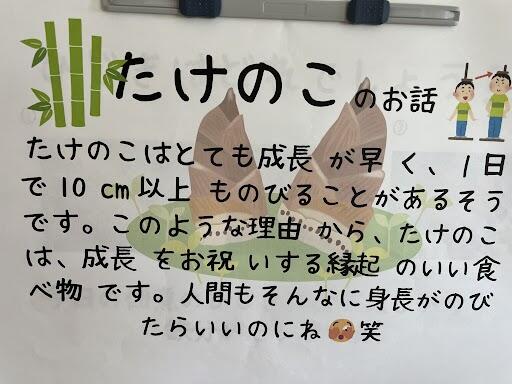 たけのこのお話
たけのこはとても成長 が早 く、1日
で10 cm以上 ものびることがあるそう
です。このような理由 から たけのこ
は、成長 をお祝 いする縁起 のいい食
べ物 です。人間もそんなに身長がのび
たらいいのにね🥵笑